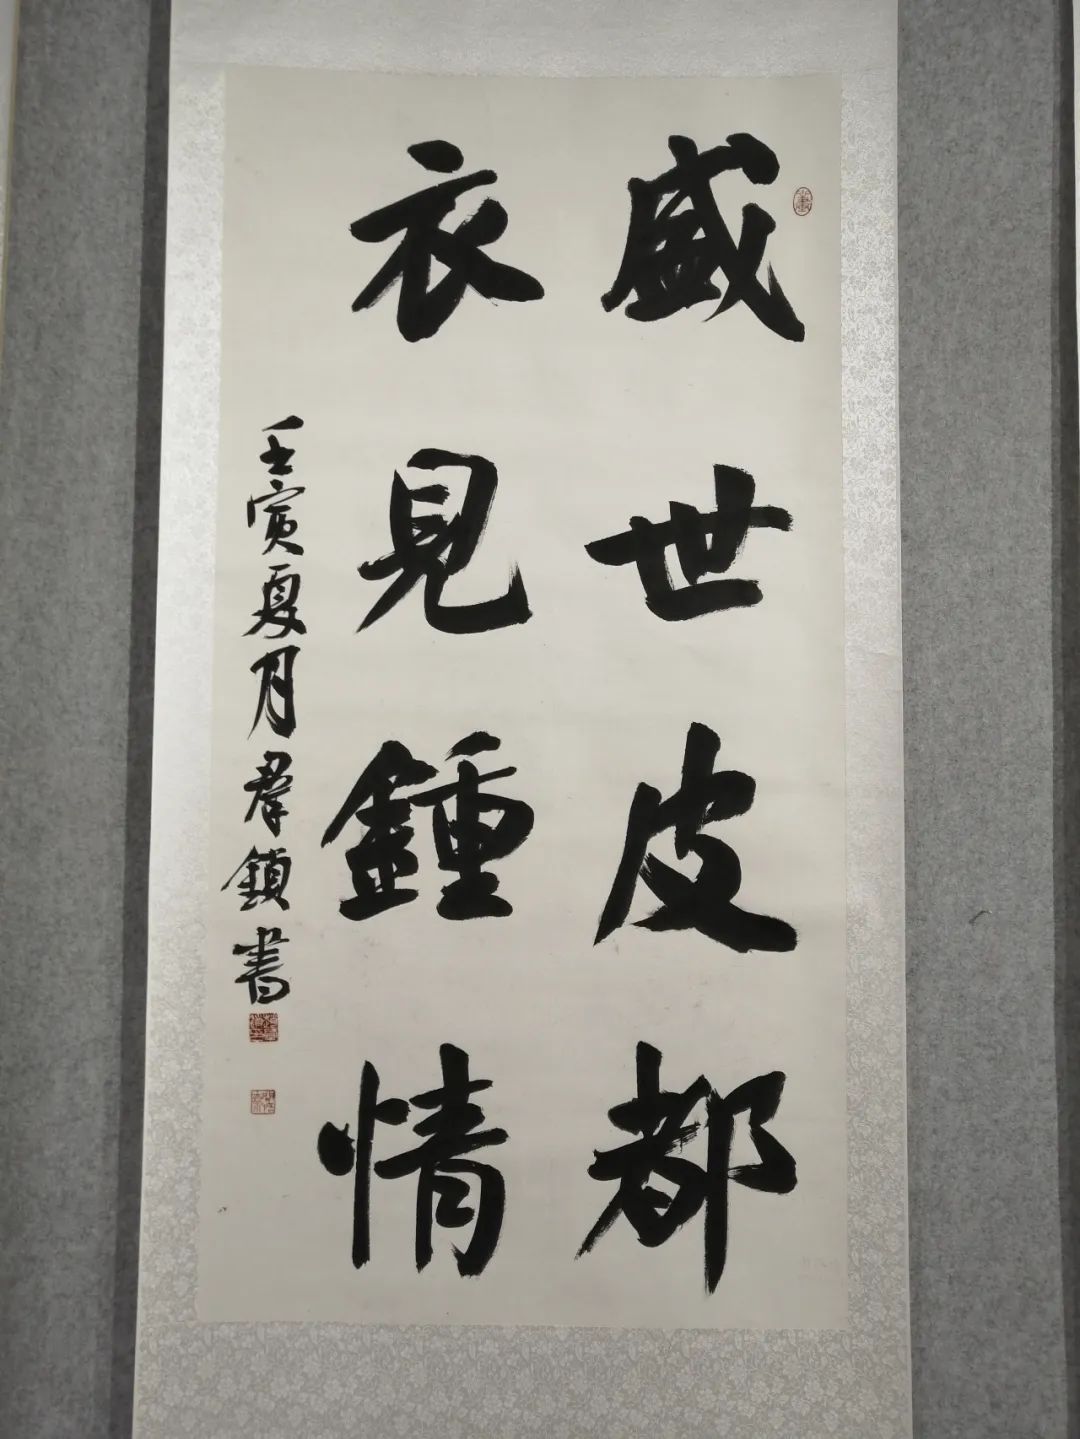 盛世皮都
衣見鍾情
壬寅夏月羣鎮書